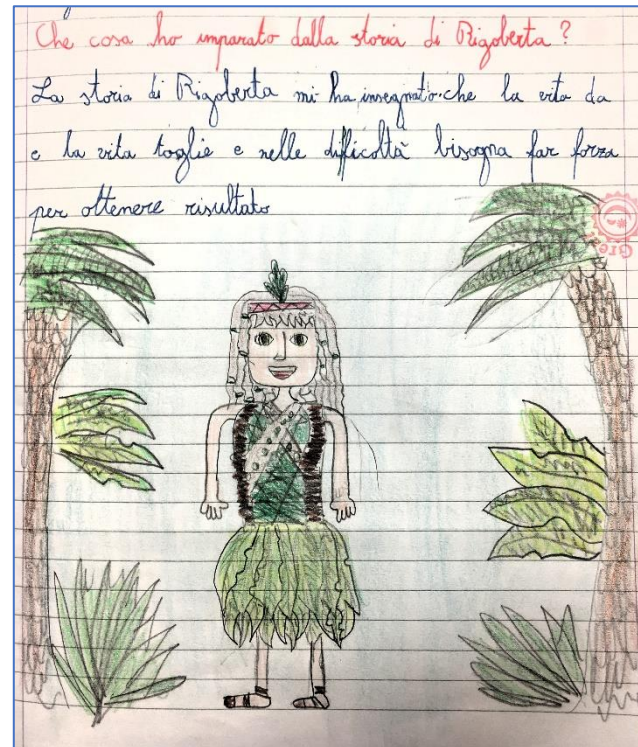 Che cosa ho imparato dalla storia di Rigoberta?
La storia di Rigoberta mi ha insegnato che la vita da
e la vita toglie e nelle difficoltà bisogna far forza
per ottenere risultato